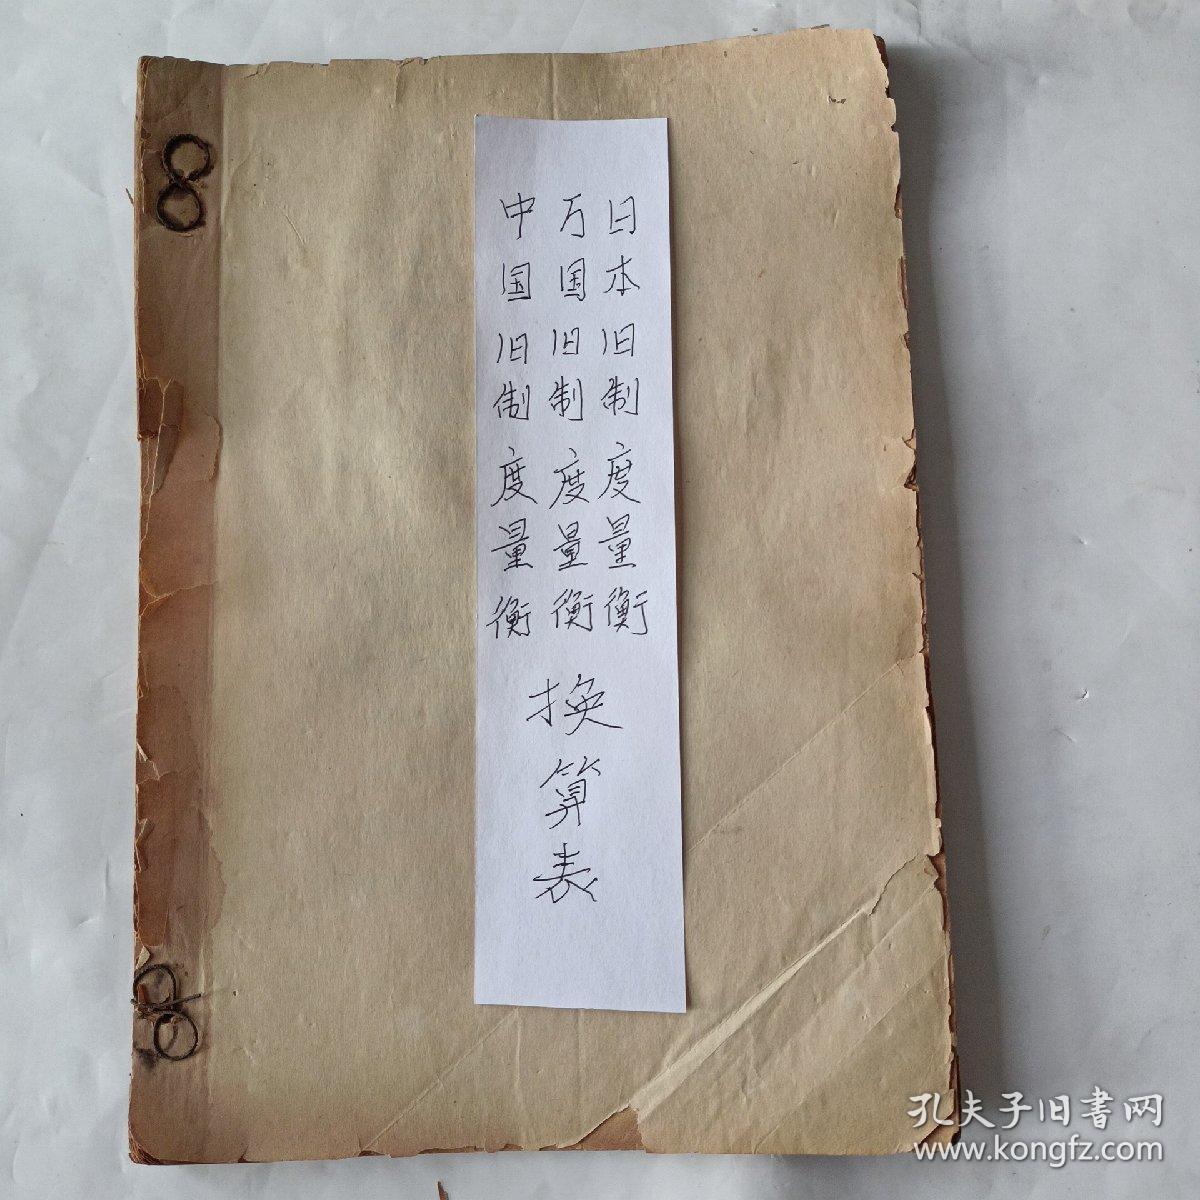 日本旧制度量衡
万国旧制度量衡
中国旧制度量衡
换算表
孔夫子旧書网
www.kongfz.com